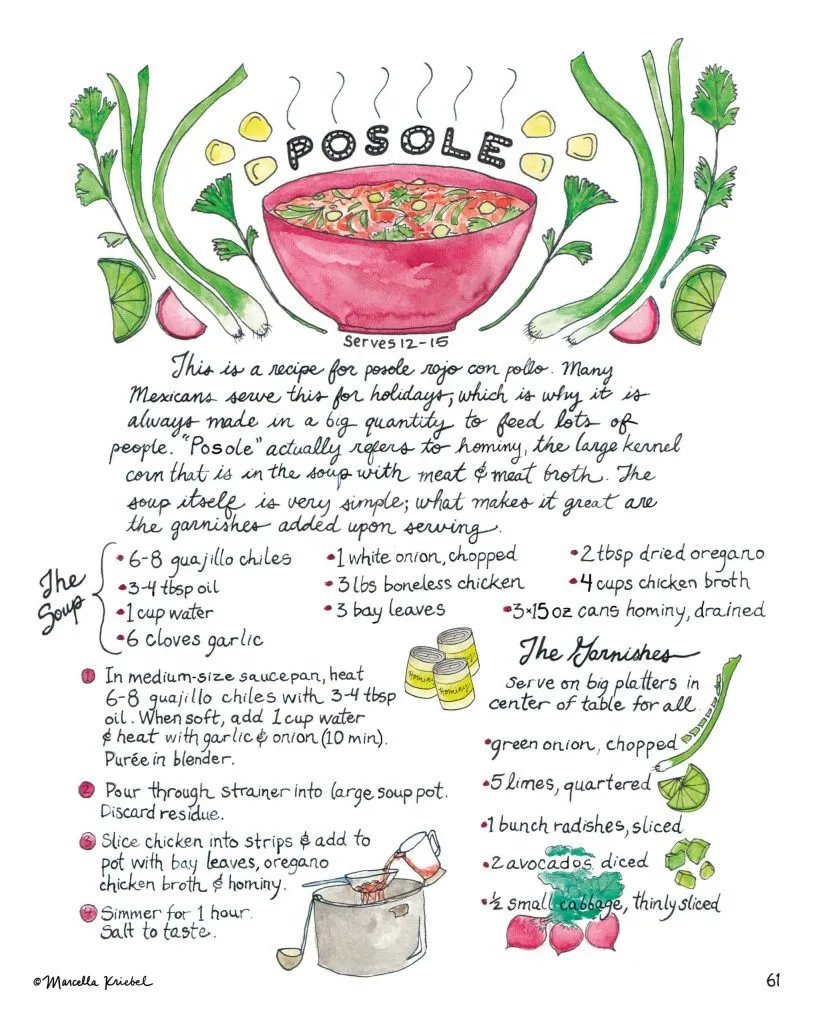 POSOLE
Serves 12-15
This is a recipe for posole rojo con pollo. Many
Mexicans serve this for holidays, which is why it is
always made in a big quantity to feed lots of
people. "Posole" actually refers to hominy, the large kernel
corn that is in the soup with meat & meat broth. The
soup itself is very simple; what makes it great are
the garnishes added upon serving.
The
Soup
• 6-8 guajillo chiles
• 3-4 tbsp oil
• 1 cup water
• 6 cloves garlic
• 1 white onion, chopped
• 3 lbs boneless chicken
• 3 bay leaves
• 2 tbsp dried oregano
• 4 cups chicken broth
• 3×15 oz cans hominy, drained
1 In medium-size saucepan, heat
6-8 guajillo chiles with 3-4 tbsp
oil. When soft, add 1 cup water
& heat with garlic & onion (10 min).
Purée in blender.
2 Pour through strainer into large soup pot.
Discard residue.
3 Slice chicken into strips & add to
pot with bay leaves, oregano
chicken broth & hominy.
4 Simmer for 1 hour.
Salt to taste.
Hominy
Hominy
Hominy
The Garnishes
serve on big platters in
center of table for all.
• green onion, chopped
• 5 limes, quartered
• 1 bunch radishes, sliced
• 2 avocados, diced
• ½ small cabbage, thinly sliced
© Marcella Kriebel
61